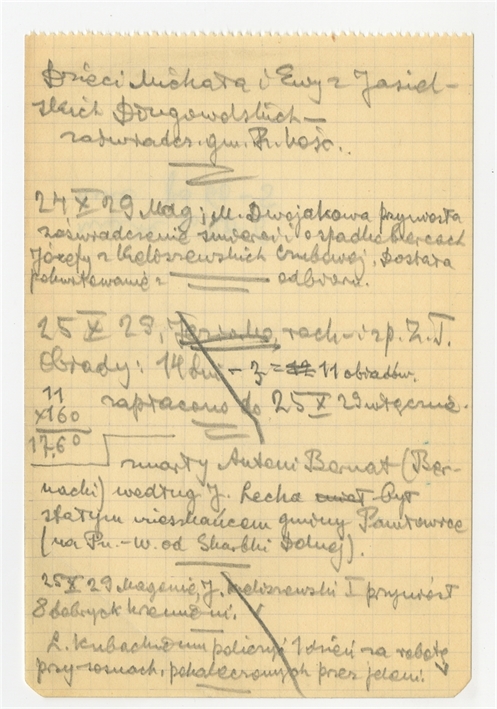 Dzieci Michała i Ewy z Jasiel-
skich Długowolskich —
zaświadcz. gm. R. Kość.
24 X 29 Mag; M. Dwojakowa przyniosła
zaświadczenie śmierci i o spadkobiercach
Józefy z Kieliszewskich . Dostała
pokwitowanie z odbioru.
25 X 29, rach-i zp. Z. T.
Obiady: 14 dni - 3 = 11 obiadów.
11
x160
17,60
zapłacono do 25 X 29 włącznie.
zmarły Antoni Bernat (Ber-
nacki) według J. Lecha był
stałym mieszkańcem gminy Pawłowice
(na Pn.-W. od Skarbki Dolnej).
25 X 29 J. Kieliszewski I przyniósł
8 dobrych krzemieni.
policzyć 1 dzień za robotę
przy sosnach, pokaleczonych przez jelenie.